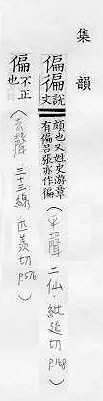 集韻
偏徧說文頗也又姓史游章有偏呂張亦作徧(平聲 二仙 紕延切 P.168)
偏不正也(去聲 三十三線 匹羨切 P.576)